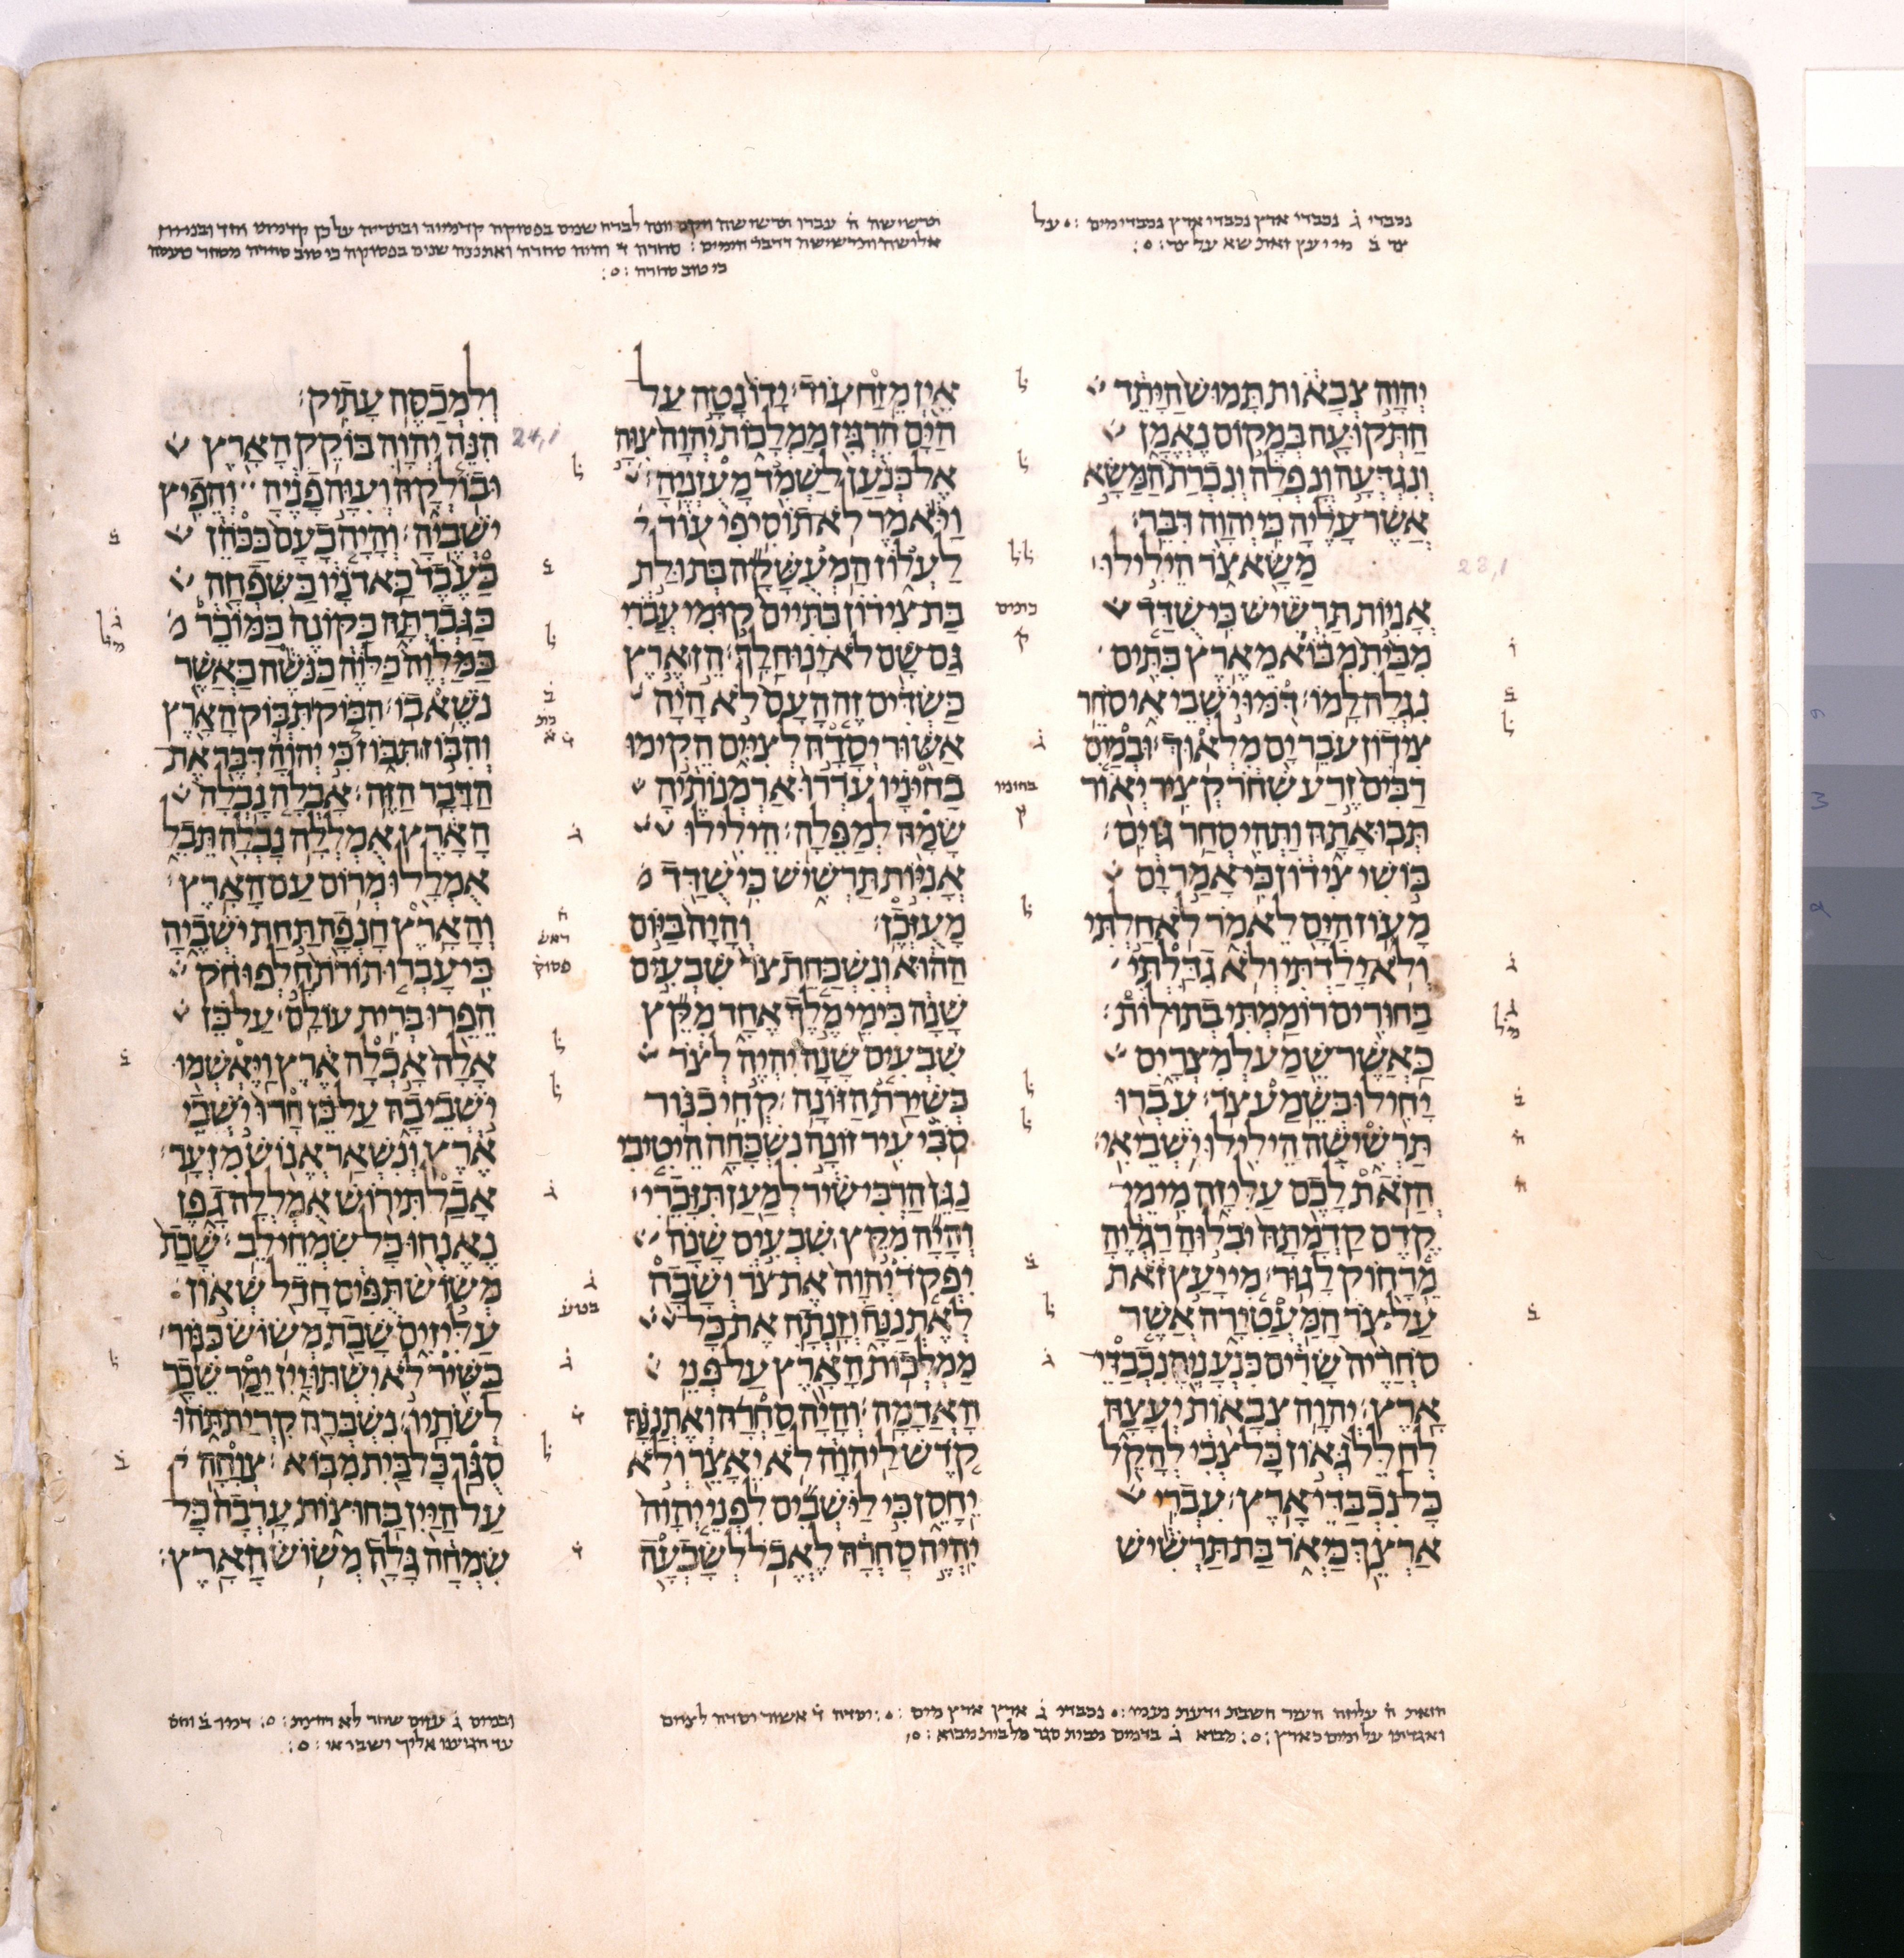 נכבדי ג נכבדי ארץ נכבדי ארץ נכבדי מים על
צר ב מי יעץ זאת משא על צר
תרשישה ה עברו תרשישה ויקם יונה לברח שנים בפסוקה
כי טוב סחרה
יהוה צבאות תמוש היתד
התקועה במקום נאמן
ונגדעה ונפלה ונכרת המשא
אשר עליה כי יהוה דבר׃
משא צר הילילו
אניות תרשיש כי שדד
מבית מבוא מארץ כתים
נגלה למו׃ דמו ישבי אי סחר
צידון עבר ים מלאוך׃ ובמים
רבים זרע שחר קציר יאור
תבואתה ותהי סחר גוים׃
בושי צידון כי אמר ים
מעוז הים לאמר לא חלתי
ולא ילדתי ולא גדלתי
בחורים רוממתי בתולות׃
כאשר שמע למצרים
יחילו כשמע צר׃ עברו
תרשישה הילילו ישבי אי׃
הזאת לכם עליזה מימי
קדם קדמתה יבלוה רגליה
מרחוק לגור׃ מי יעץ זאת
על צר המעטירה אשר
סחריה שרים כנעניה נכבדי
ארץ׃ יהוה צבאות יעצה
לחלל גאון כל צבי להקל
כל נכבדי ארץ׃ עברי
ארצך כיאר בת תרשיש
אין מזח עוד׃ ידו נטה על
הים הרגיז ממלכות יהוה צוה
אל כנען לשמד מעזניה׃
ויאמר לא תוסיפי עוד
לעלוז המעשקה בתולת
בת צידון כתיים קומי עברי
גם שם לא ינוח לך׃ הן ארץ
כשדים זה העם לא היה
אשור יסדה לציים הקימו
בחיניו עררו ארמנותיה
שמה למפלה׃ הילילו
אניות תרשיש כי שדד
מעזכן׃ והיה ביום
ההוא ונשכחת צר שבעים
שנה כימי מלך אחד מקץ
שבעים שנה יהיה לצר
כשירת הזונה׃ קחי כנור
סבי עיר זונה נשכחה היטיבי
נגן הרבי שיר למען תזכרי׃
והיה מקץ שבעים שנה
יפקד יהוה את צר ושבה
לאתננה וזנתה את כל
ממלכות הארץ על פני
האדמה׃ והיה סחרה ואתננה
קדש ליהוה לא יאצר ולא
יחסן כי לישבים לפני יהוה
יהיה סחרה לאכל לשבעה
ולמכסה עתיק׃
הנה יהוה בוקק הארץ
ובולקה ועוה פניה והפיץ
ישביה׃ והיה כעם ככהן
כעבד כאדניו כשפחה
כגברתה כקונה כמוכר
כמלוה כלוה כנשה כאשר
נשא בו׃ הבוק תבוק הארץ
והבוז תבוז כי יהוה דבר את
הדבר הזה׃ אבלה נבלה
הארץ אמללה נבלה תבל
אמללו מרום עם הארץ׃
והארץ חנפה תחת ישביה
כי עברו תורת חלפו חק
הפרו ברית עולם׃ על כן
אלה אכלה ארץ ויאשמו
ישבי בה על כן חרו ישבי
ארץ ונשאר אנוש מזער׃
אבל תירוש אמללה גפן
נאנחו כל שמחי לב׃ שבת
משוש תפים חדל שאון
עליזים שבת משוש כנור׃
בשיר לא ישתו יין ימר שכר
לשתיו׃ נשברה קרית תהו
סגר כל בית מבוא׃ צוחה
על היין בחוצות ערבה כל
שמחה גלה משוש הארץ׃
24,1
23,1
כתיים
ק
בחוניו
ק
ראש
פסוק
בטע
הזאת ה עליזה העמר חשבת ודעת נעמי נכבדי ג ארץ ארץ מים יסדה ד אשור יסדה לציים
ואגדתו על ימים בארץ מבוא ג בדמים מבית סגר כל בית מבוא
ובמים ג